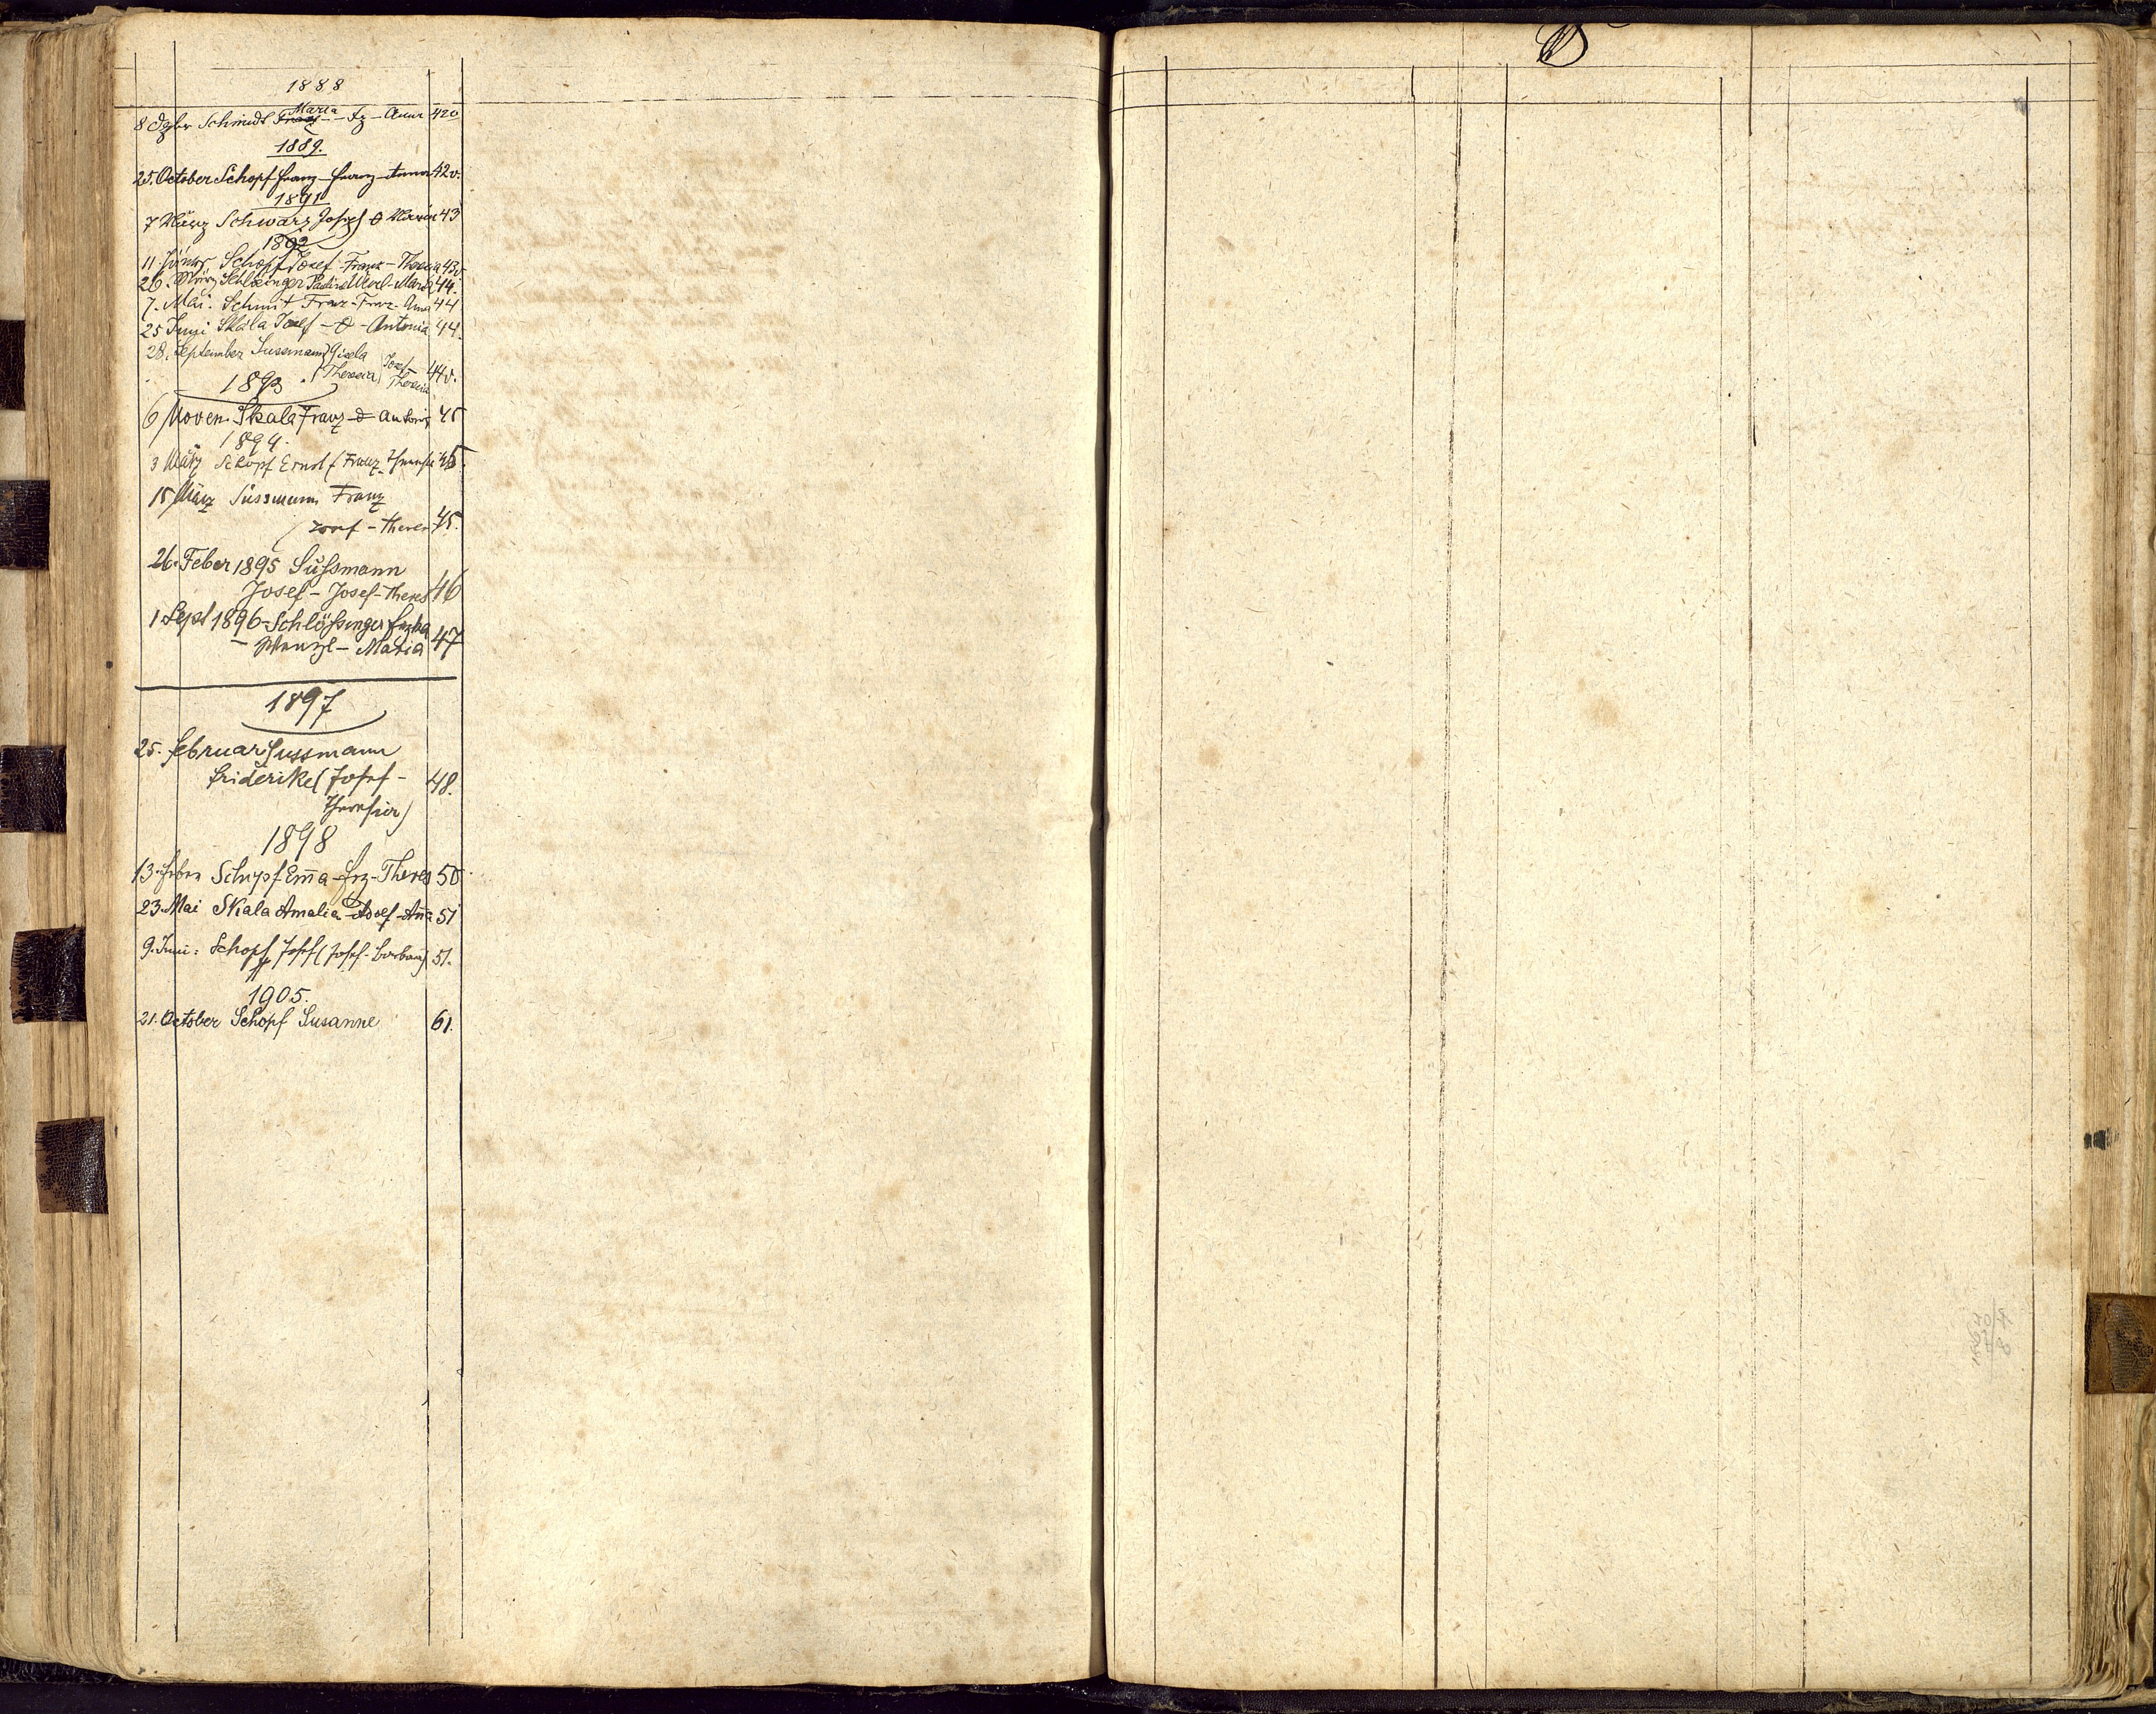 1888
8 Dzbr Schmidt Franz Maria - Fz - Anna 42v
1889.
25. October Schopf Franz - Franz - Anna 42v.
1891
7 März Schwarz Josef Θ Maria 43
1892
11. Schopf Josef Franz - Theresia 43v
26. März Schlösinger Paulina Wenzl - Maria 44.
7. Mai. Schmit Franz - Franz - Anna 44
25 Juni Skala Josef - Θ - Antonia 44.
28. September Sussmann Gisela
Theresia Josef - Theresia 44v.
1893
6 Novem. Skala Franz - Θ Antonia 45
1894.
3 März Schopf Ernst (Franz - Theresia 45.
15 März Süssmann Franz
Josef - Theres 45.
26. Feber 1895 Sußmann
Josef - Josef - Theres 46
1 Sept 1896 - Schlößinger
- Wenzl - Maria 47
1897
25. Februar Sussmann
Friderike (Josef - 48.
Theresia)
1898
13. Feber Schopf Em̄a - Frz - Theres 50
23. Mai Skala Amalia - Josef - An̄a 51
9. Juni: Schopf Josef (Josef - Barbara) 51.
1905.
21. October Schopf Susanne 61.